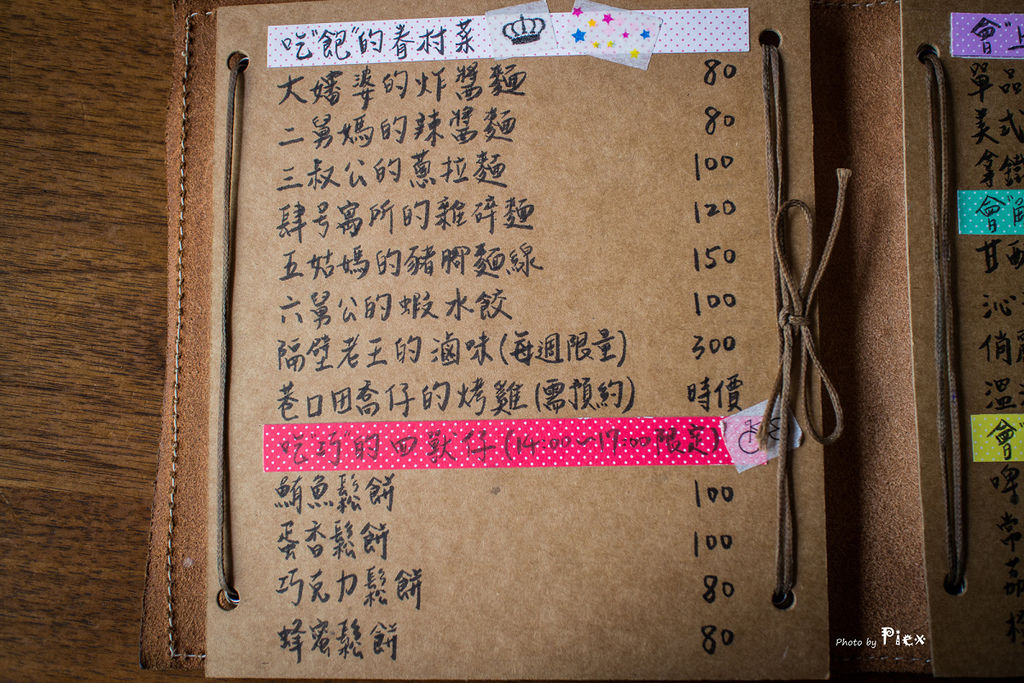 吃"飽"的眷村菜
大嬸婆的炸醬麵 80
二舅媽的辣醬麵 80
三叔公的蔥拉麵 100
肆号寓所的雜碎麵 120
五姑媽的豬腳麵線 150
六舅公的蝦水餃 100
隔壁老王的滷味(每週限量) 300
巷口田喬仔的烤雞(需預約) 時價
吃"巧"的四獸仔(14:00~17:00限定)
鮪魚鬆餅 100
蛋香鬆餅 100
巧克力鬆餅 80
蜂蜜鬆餅 80
會"上
單品
美式
拿鐵
會"
甘
沁
俏
溫
會"
啤
常
Photo by Piex